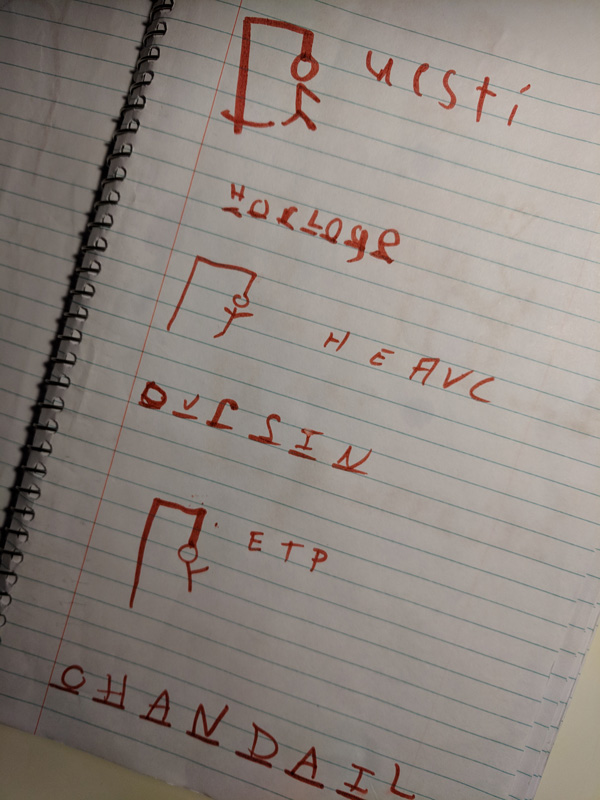 u c s t i
HorLoge
H E A V C
OURSIN
E T P
CHANDAIL